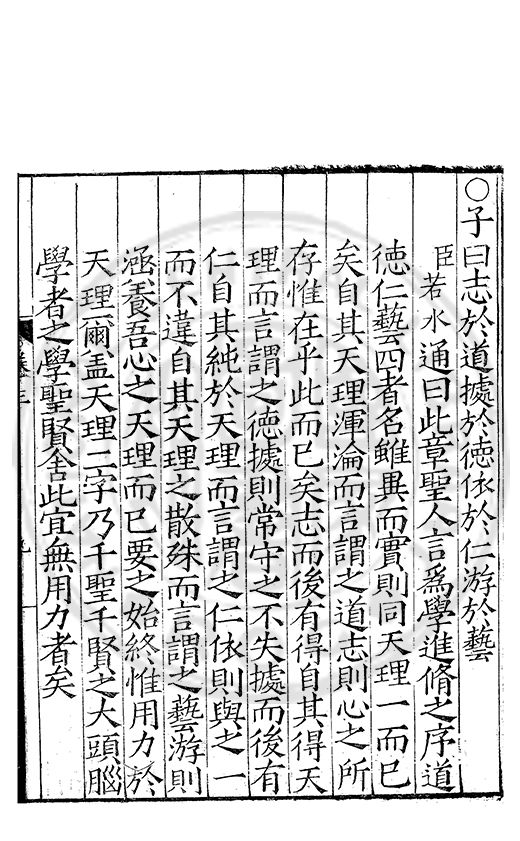 ○子曰志於道據於徳依於仁游於藝
臣若水通曰此章聖人言為學進脩之序道
徳仁藝四者名雖異而實則同天理一而已
矣自其天理渾淪而言謂之道志則心之所
存惟在乎此而已矣志而後有得自其得天
理而言謂之徳據則常守之不失據而後有
仁自其純於天理而言謂之仁依則與之一
而不違自其天理之散殊而言謂之藝游則
涵養吾心之天理而已要之始終惟用力於
天理爾盖天理二字乃千聖千賢之大頭腦
學者之學聖賢舍此宜無用力者矣
卷三
九